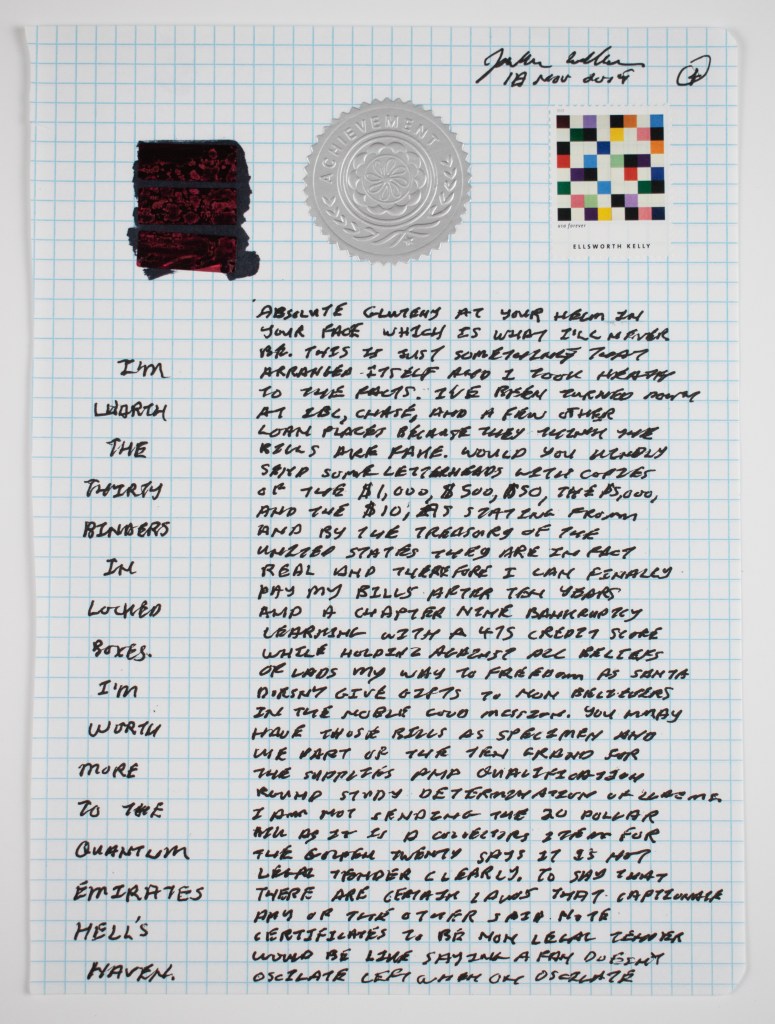 18 NOV 2019
ACHIEVEMENT
USA forever
ELLSWORTH KELLY
ABSOLUTE GLUTENY AT YOUR HELM IN
YOUR FACE WHICH IS WHAT I'LL NEVER
BE. THIS IS JUST SOMETHING THAT
ARRANGED ITSELF AND I TOOK
TO THE FACTS. I'VE BEEN TURNED DOWN
AT CHASE, AND A FEW OTHER
LOAN PLACES BECAUSE THEY THINK THE
BILLS ARE FAKE. WOULD YOU KINDLY
SEND SOME LETTERHEADS WITH COPIES
OF THE $1,000, $500, $50, THE $5,000,
AND THE $10, STATING FROM
AND BY THE TREASURY OF THE
UNITED STATES THEY ARE IN FACT
REAL AND THEREFORE I CAN FINALLY
PAY MY BILLS AFTER TEN YEARS
AND A CHAPTER NINE BANKRUPTCY
LEARNING WITH A 475 CREDIT SCORE
WHILE HOLDING AGAINST ALL BELIEFS
OF LADS MY WAY TO FREEDOM AS SANTA
DOESN'T GIVE GIFTS TO NON BELIEVERS
IN THE NOBLE MISSION. YOU MAY
HAVE THOSE BILLS AS SPECIMEN AND
PART OF THE TEN GRAND FOR
THE SUPPLIES AND QUALIFICATION
ROUND STUDY DETERMINATION OF
I AM NOT SENDING THE 20 DOLLAR
BILL AS IT IS A COLLECTORS ITEM FOR
THE GOLDEN TWENTY SAYS IT IS NOT
LEGAL TENDER CLEARLY. TO SAY THAT
THERE ARE CERTAIN LAWS THAT
ANY OF THE OTHER SAID NOTE
CERTIFICATES TO BE NON LEGAL TENDER
WOULD BE LIKE SAYING A FAN DOESN'T
OSCILATE LEFT WHEN ON OSCILATE
I'M
WORTH
THE
THIRTY
BINDERS
IN
LOCKED
BOXES.
I'M
WORTH
MORE
TO THE
QUANTUM
EMIRATES
HELL'S
HAVEN.